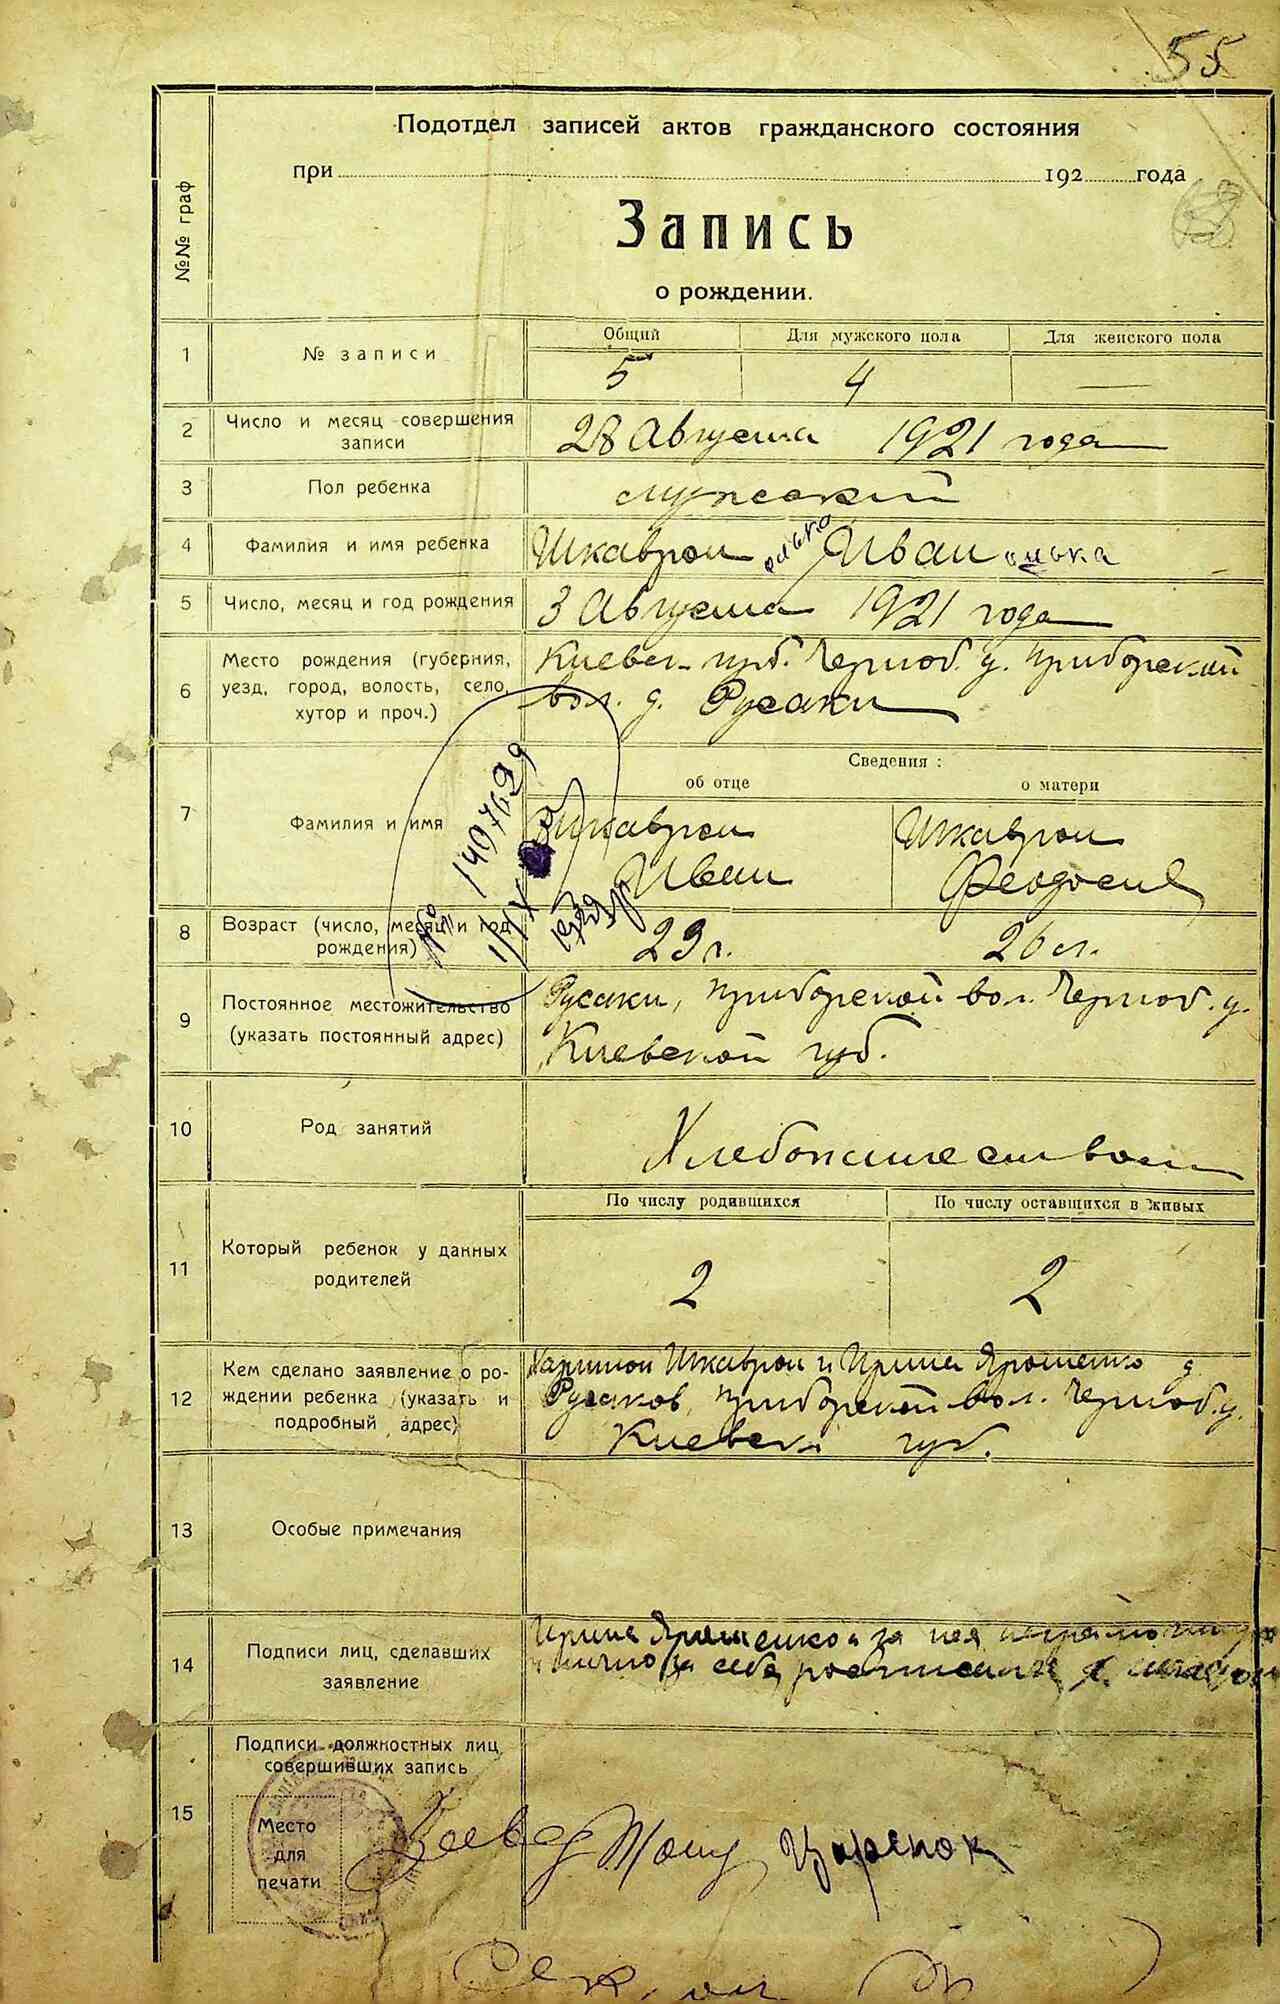 55
Подотдел записей актов гражданского состояния
при 192 года
Запись
о рождении.
№№ граф
Общий Для мужского пола Для женского пола
1 № записи 5 4 —
2 Число и месяц совершения записи
28 Августа 1921 года
3 Пол ребенка мужеский
4 Фамилия и имя ребенка Шкаврон Иван
5 Число, месяц и год рождения 3 Августа 1921 года
6 Место рождения (губерния, уезд, город, волость, село, хутор и проч.)
Киевск. губ. Черноб. у. Приборской
вол. д. Русаки
Сведения:
об отце о матери
7 Фамилия и имя
Шкаврон Шкаврон
Иван Феодосия
№ 1407629
8 Возраст (число, месяц и год рождения) 29 г. 26 л.
9 Постоянное местожительство (указать постоянный адрес)
Русаки, Приборской вол. Черноб. у.
Киевской губ.
10 Род занятий
Хлебопашеством
По числу родившихся По числу оставшихся в живых
11 Который ребенок у данных родителей 2 2
12 Кем сделано заявление о рождении ребенка (указать и подробный адрес)
Харитон Шкаврон и Ирина Ярошенко д.
Русаков, Приборской вол. Черноб. у.
Киевск. губ.
13 Особые примечания
14 Подписи лиц, сделавших заявление
Ирина Ярошенко а за нея
и лично за себя росписался
15 Подписи должностных лиц, совершивших запись
Место
для
печати
Завед. Царенок